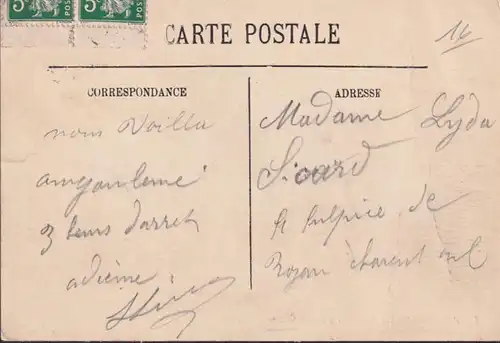 5 5
CARTE POSTALE
16
CORRESPONDANCE
nous Voilla
amgouleme
3 heurs darret
adieme
ADRESSE
Madame Lyda
Sicard
St Sulpice de
Royan charent inf